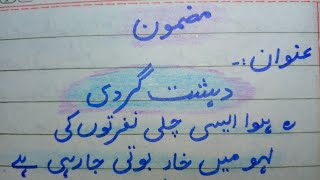 مضمون
عنوان :-
دہشت گردی
ہ ہوا ایسی چلی نفرتوں کی
لہو میں خار بوتی جا رہی ہے